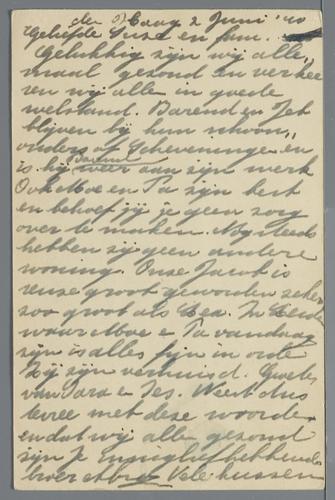 den Haag 2 Juni '40
Geliefde Suze en fam.
Gelukkig zijn wij alle,,
maal gezond en verkee
ren wij alle in goede
welstand. Barend en Jet
blijven bij hun schoon,,
ouders op Scheveningen en
is hij Barend weer aan zijn werk
Ook Moe en Pa zijn best
en behoef jij je geen zorg
over te maken. Nog steeds
hebben zij geen andere
woning. Onze Jacob is
reuze groot geworden zeker
zoo groot als Lea. In
waar Moe e Pa vandaag
zijn is alles fijn in orde
Zij zijn verhuisd. Groeten
van Sara e Jes. Weest dus
tevree met deze woorden
en dat wij alle gezond
zijn Je innig liefhebbende
broer Vele kussen